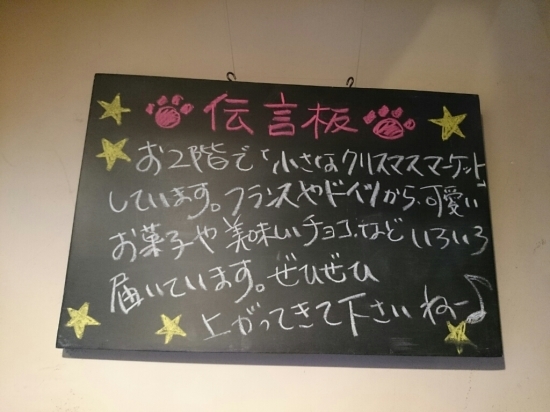 伝言板
お2階で「小さなクリスマスマーケット」
しています。フランスやドイツから、可愛い
お菓子や美味しいチョコ、などいろいろ
届いています。ぜひぜひ
上がってきて下さいねー♪